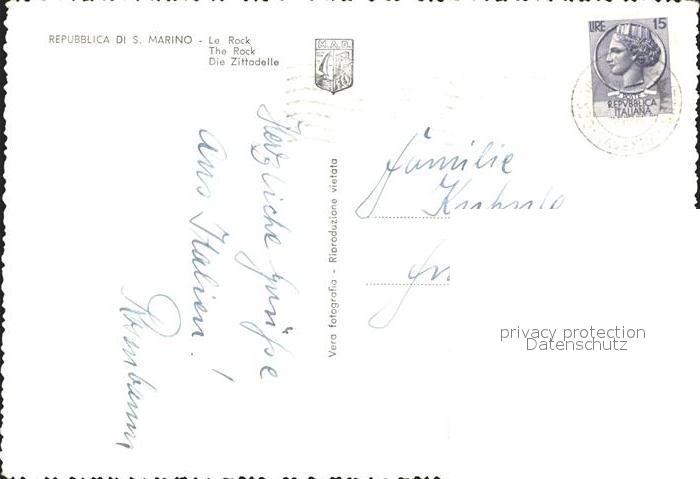 REPUBBLICA DI S. MARINO - Le Rock
The Rock
Die Zittadelle
M.A.B.
LIRE 15
POSTE
REPVBBLICA
ITALIANA
Herzliche Grüße
aus Italien!
Vera fotografia - Riproduzione vietata
Familie
privacy protection
Datenschutz